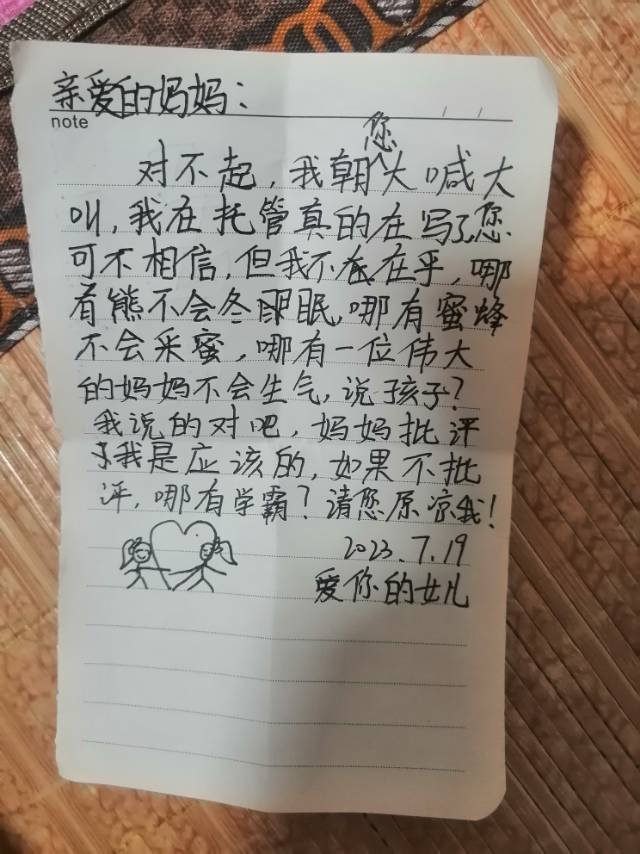 亲爱的妈妈：
note / /
对不起，我朝您大喊大
叫，我在托管真的在写了，您
可不相信，但我不在乎，哪
有熊不会冬眠，哪有蜜蜂
不会采蜜，哪有一位伟大
的妈妈不会生气，说孩子？
我说的对吧，妈妈批评
我是应该的，如果不批
评，哪有学霸？请您原凉我！
2023.7.19
爱你的女儿